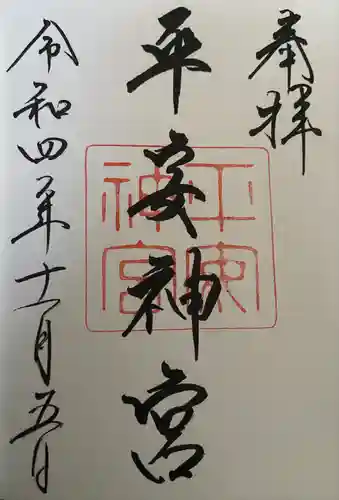 奉拝
平安神宮
令和四年十一月五日
平安神宮